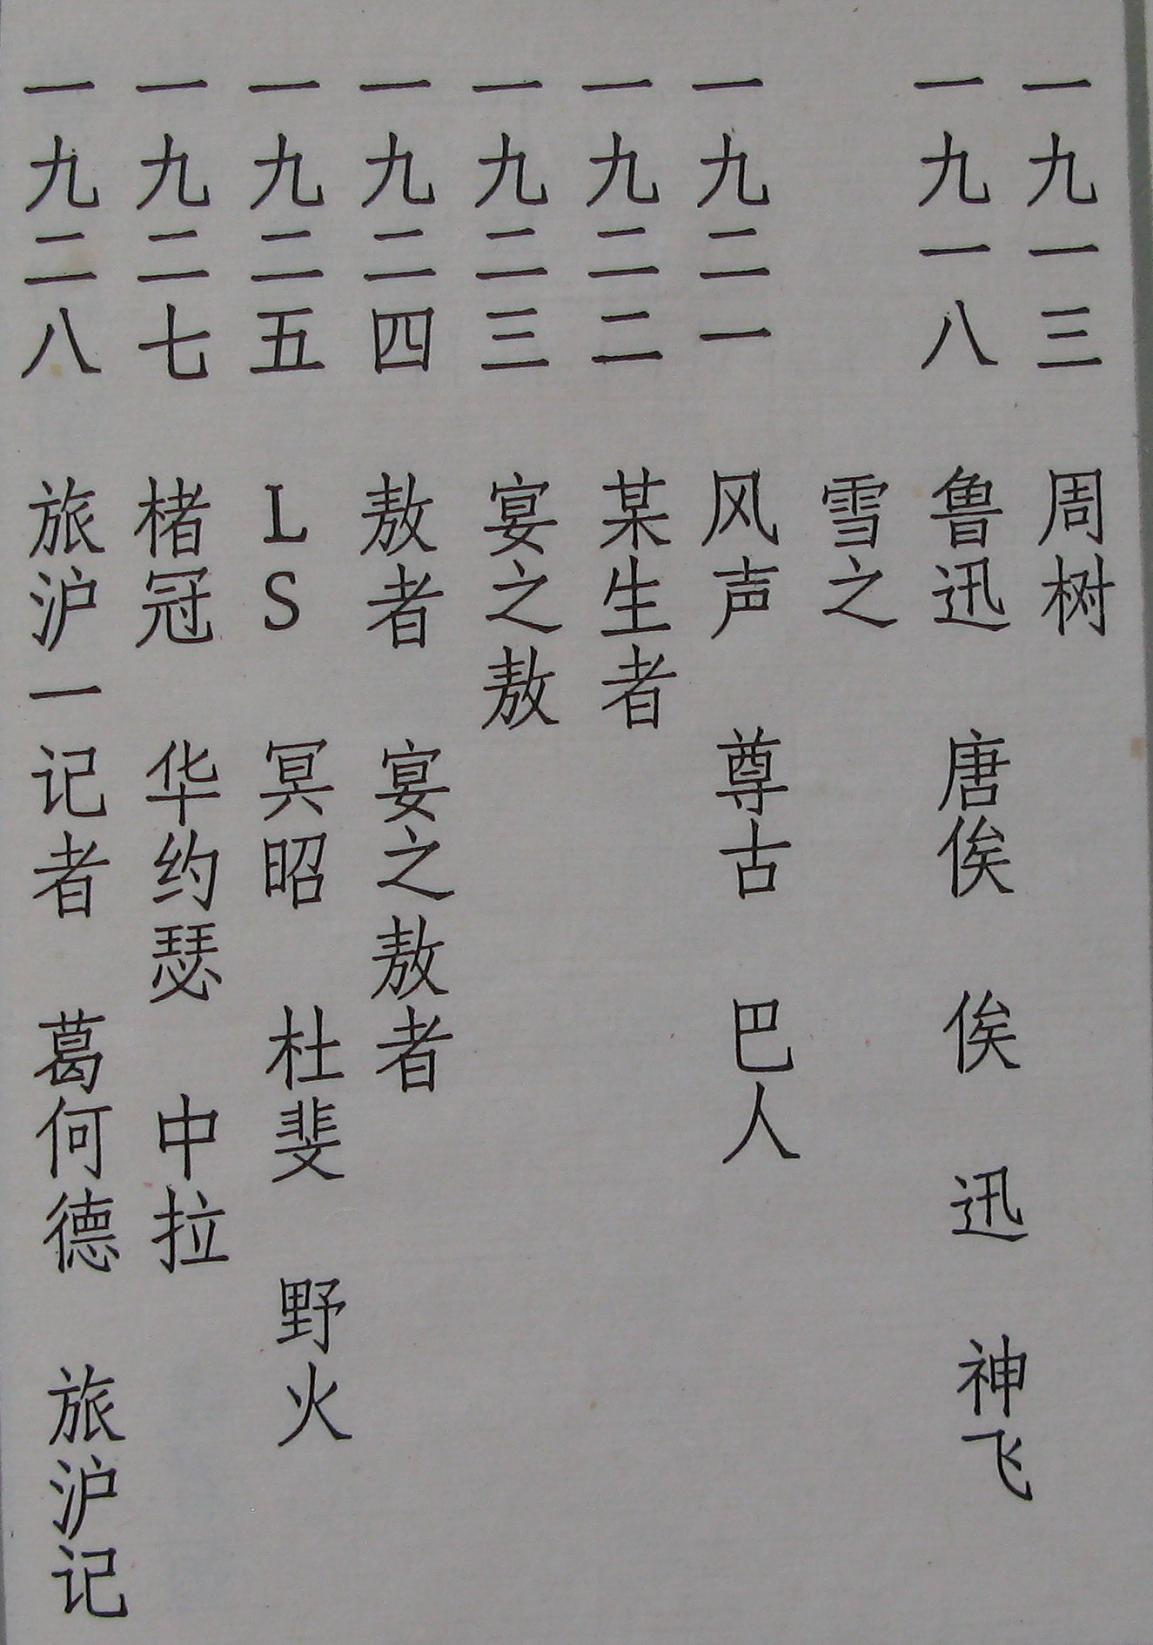 一九一三 周树
一九一八 鲁迅 唐俟 俟 迅 神飞
雪之
一九二一 风声 尊古 巴人
一九二二 某生者
一九二三 宴之敖
一九二四 敖者 宴之敖者
一九二五 LS 冥昭 杜斐 野火
一九二七 楮冠 华约瑟 中拉
一九二八 旅沪一记者 葛何德 旅沪记